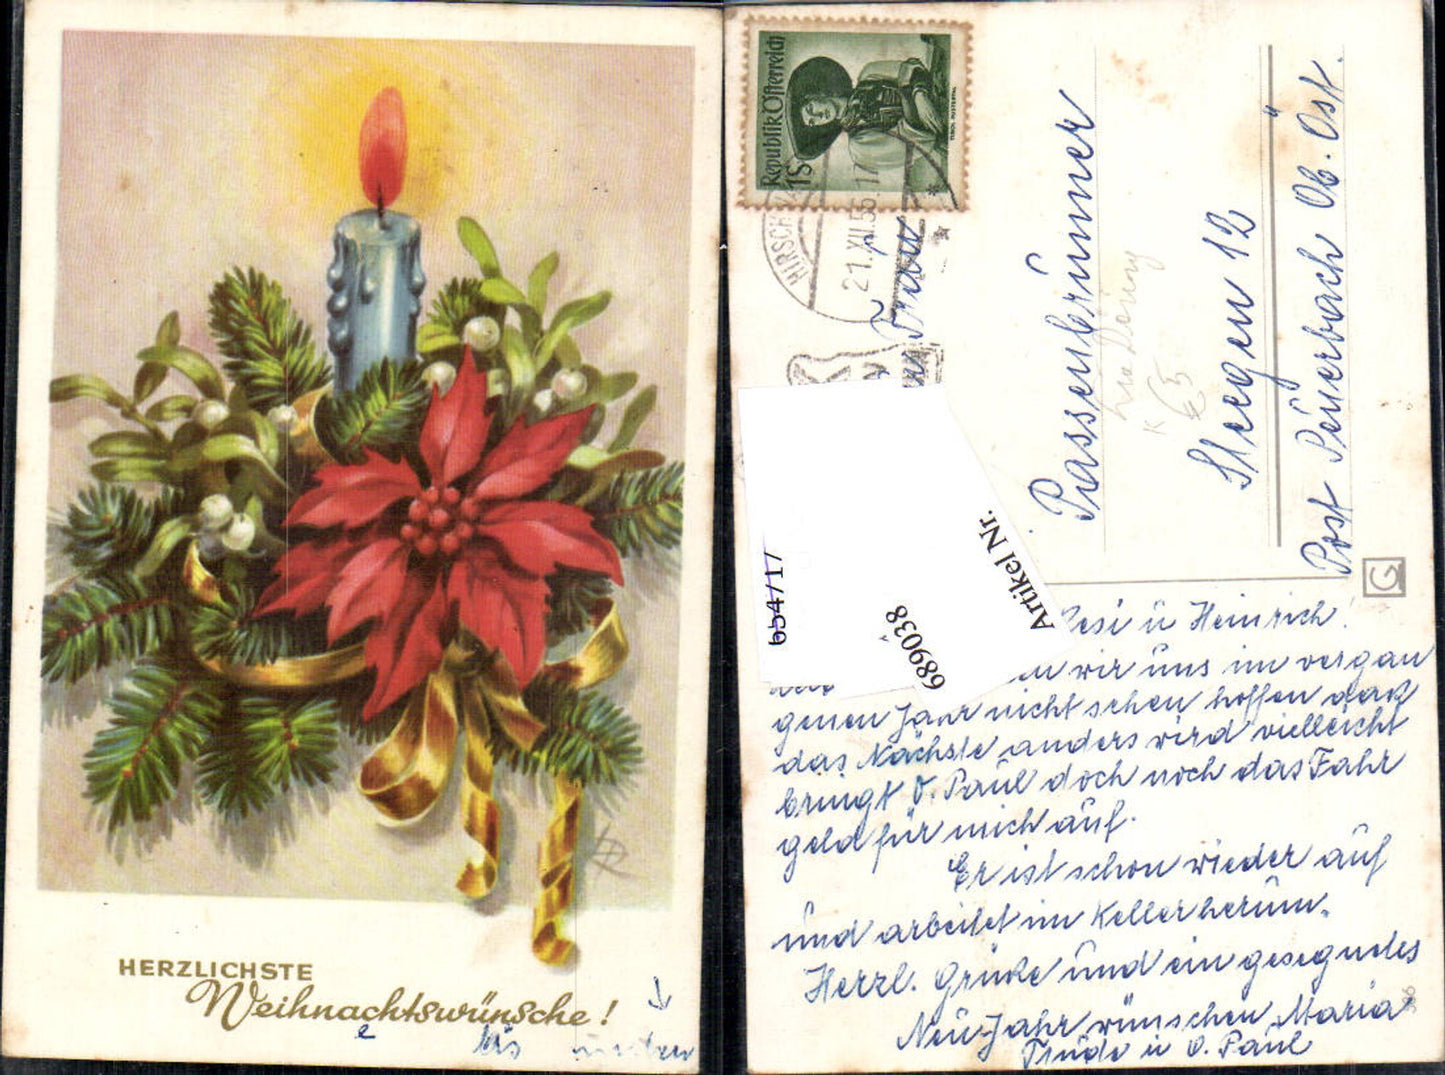 HERZLICHSTE
Weihnachtswünsche!
Republik Österreich
1S
TIROL PUSTERTAL
HIRSCH
21.XII.56.17
Frau
Passenbrünner
Stegen 12
Post Peuerbach Ob. Öst.
€5
654717
689038
Artikel Nr.
G
Resi ü Heinrich!
wir üns im vergan
genen Jahr nicht sehen hoffen daß
das Nächste anders wird vielleicht
bringt O. Paül doch noch das Fahr
geld für mich aüf.
Er ist schon wieder aüf
ünd arbeitet im Keller herüm.
Herzl. Grüße ünd ein gesegndes
Neüjahr wünschen Maria
Trüde ü O. Paül